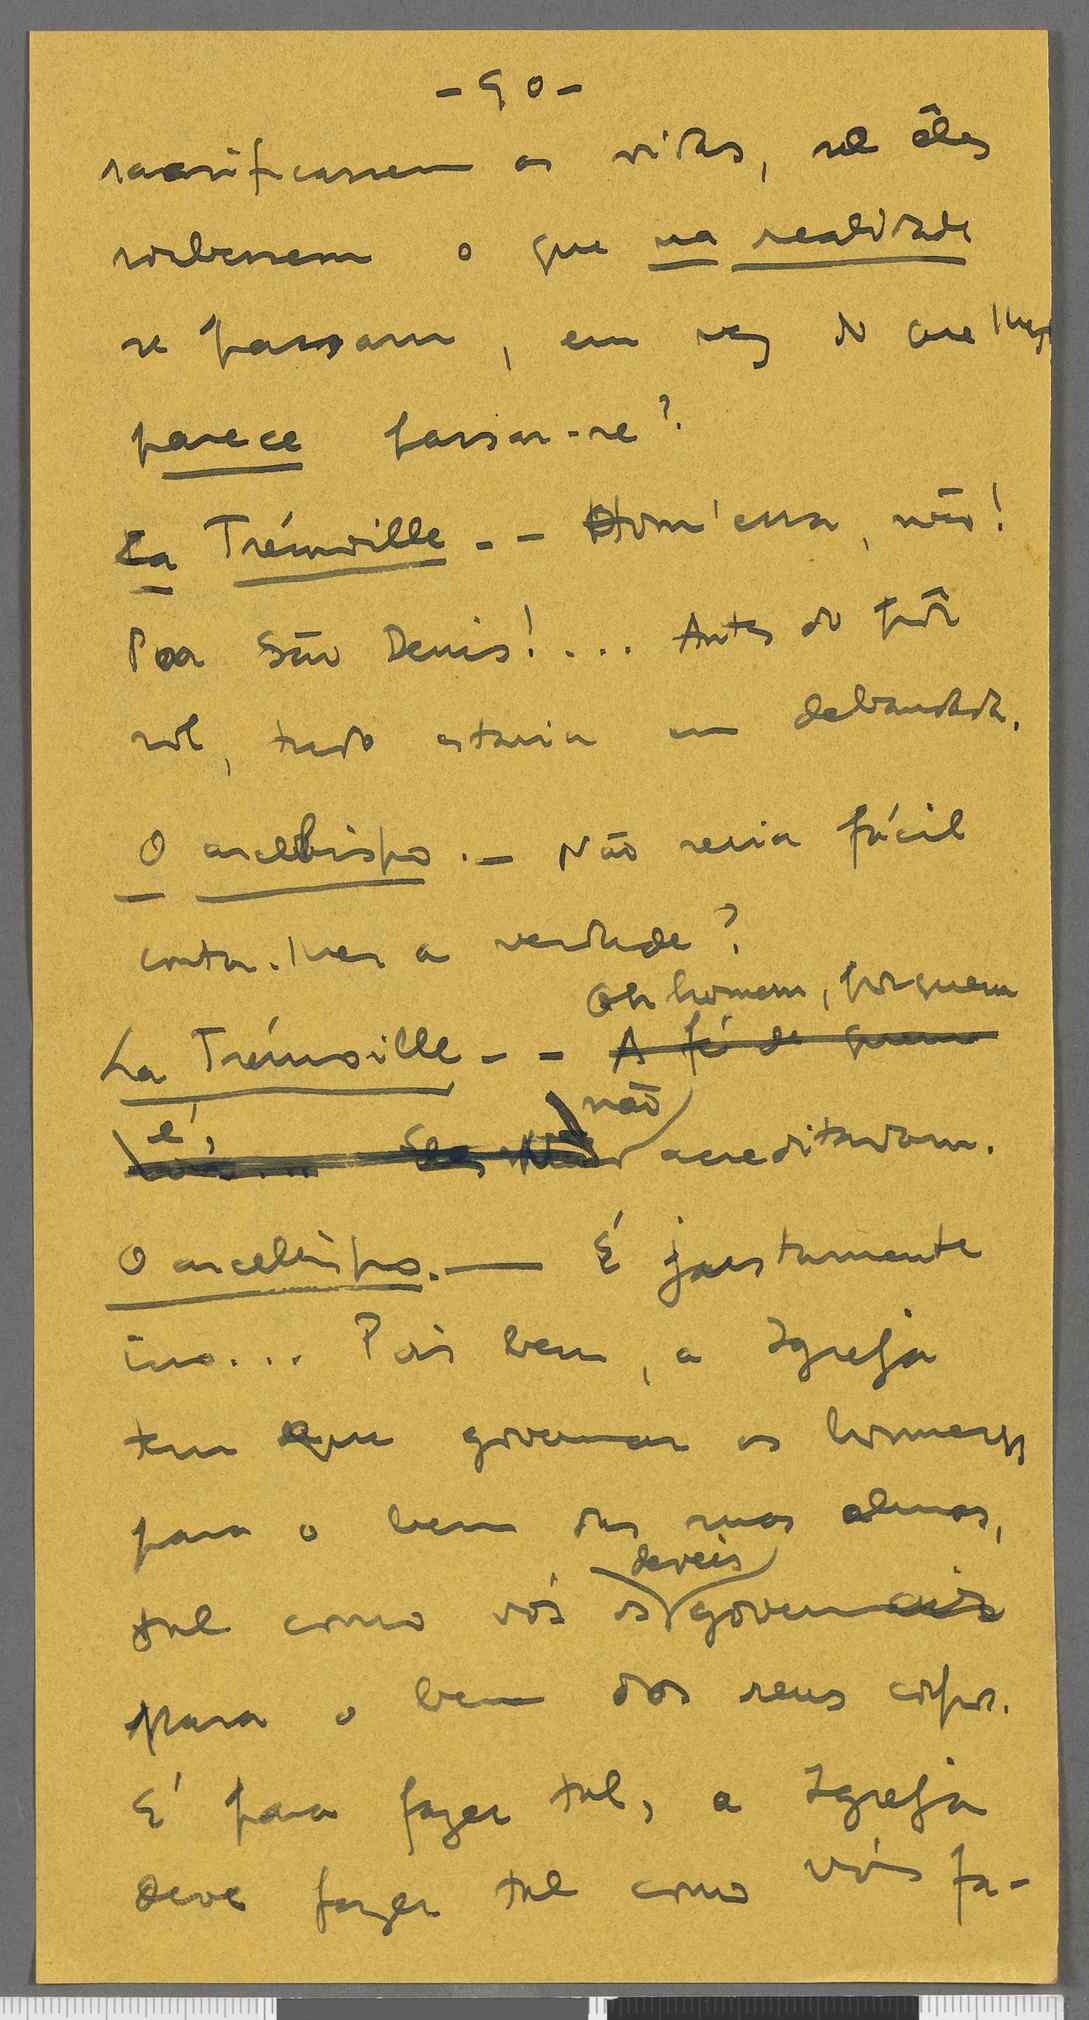 - 90 -
sacrificassem as vidas, se êles
soubessem o que na realidade
se passava, em vez do que lhes
parece passar-se?
La Trémoille - - Hom'essa, não!
Por São Denis!... Antes do pôr
sol, tudo estaria em debandada.
O arcebispo. - Não seria fácil
contar-lhes a verdade?
Oh homem, porquem
La Trémoille - - A fé de quem
é, não
Eles acreditavam.
O arcebispo. — É justamente
isso... Pois bem, a Igreja
tem que governar os homens
para o bem das suas almas,
deveis
tal como vós os governais
para o bem dos seus corpos.
E para fazer tal, a Igreja
deve fazer tal como vós fa-